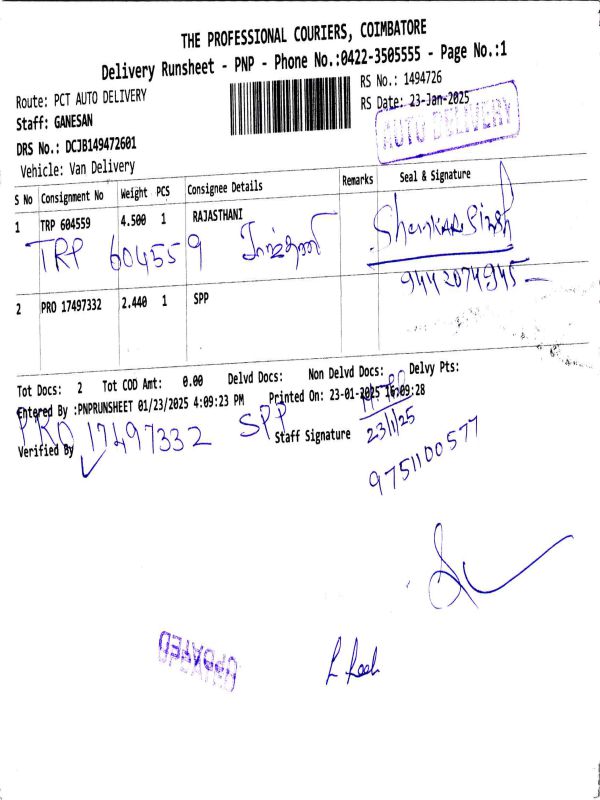 THE PROFESSIONAL COURIERS, COIMBATORE
Delivery Runsheet - PNP - Phone No.:0422-3505555 - Page No.:1
Route: PCT AUTO DELIVERY
RS No.: 1494726
Staff: GANESAN
RS Date: 23-Jan-2025
AUTO DELIVERY
DRS No.: DCJB149472601
Vehicle: Van Delivery
S No Consignment No Weight PCS Consignee Details Remarks Seal & Signature
1 TRP 604559 4.500 1 RAJASTHANI
TRP 604559 Shankar Singh
9442074945
2 PRO 17497332 2.440 1 SPP
Tot Docs: 2 Tot COD Amt: 0.00 Delvd Docs: Non Delvd Docs: Delvy Pts:
Entered By :PNPRUNSHEET 01/23/2025 4:09:23 PM Printed On: 23-01-2025 16:09:28
PRO 17497332 SPP
Verified By Staff Signature
23/1/25
9751100577
UPDATED